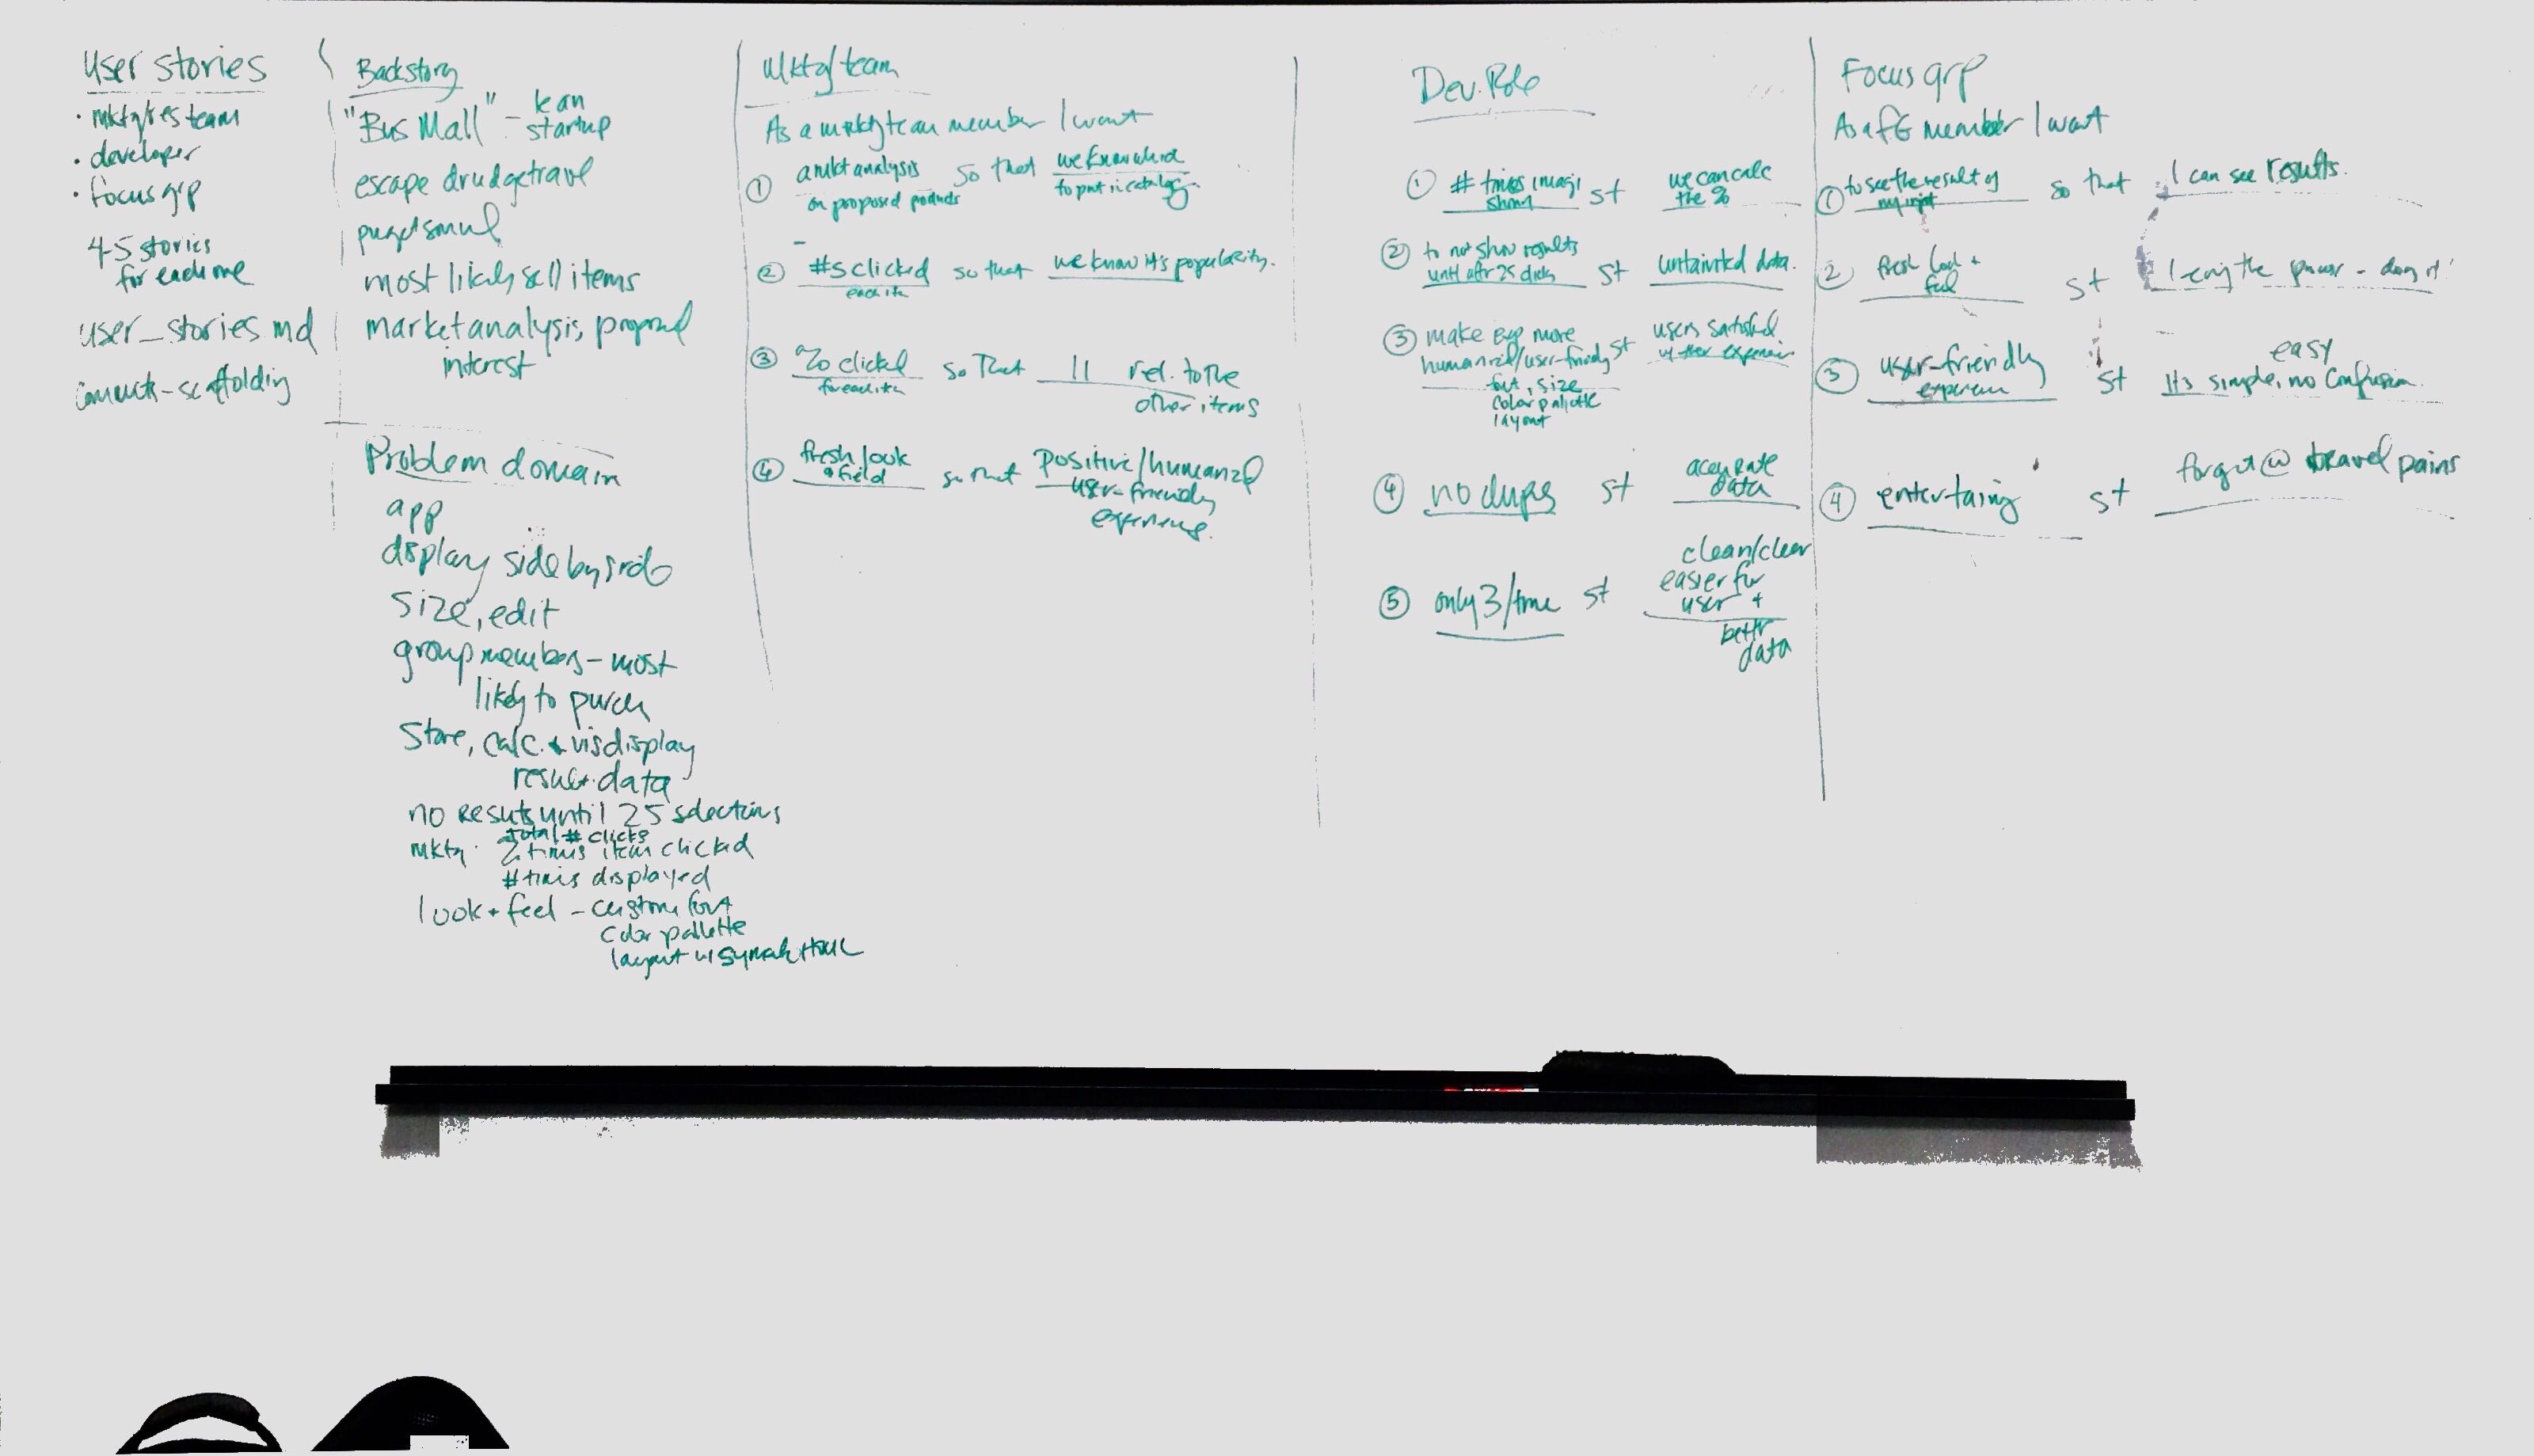 User stories
· mktg/res team
· developer
· focus grp
4-5 stories
for each one
user_stories md
commit - scaffolding
Backstory
"Bus Mall" - lean
startup
escape drudge travel
most likely sell items
market analysis, proposed
interest
Problem domain
app
display side by side
size, edit
group members - most
likely to purch
Store, calc. + vis display
result data
no results until 25 selections
total # clicks
mktg · % times item clicked
# times displayed
look + feel - custom font
color pallette
layout w/ HTML
Mktg team
As a mrktg team member I want
① a mkt analysis so that we know which
on proposed products to put in catalog.
② #s clicked so that we know it's popularity.
each itm
③ % clicked so that 11 rel. to the
for each itm other items
④ fresh look so that positive/humanzd
user-friendly
experience.
Dev. Role
① # times imag st we can calc
shown the %
② to not show results st untainted data.
until aftr 25 clicks
③ make exp more st users satisfied
humanized/user-friendly w/ their experience
font, size
color palette
layout
④ no dups st accurate
data
⑤ only 3/time st clean/clear
easier for
user +
bettr
data
Focus grp
As a FG member I want
① to see the result of so that I can see results.
my input
② fresh look + st I enjoy the
feel
③ user-friendly st easy
experience its simple, no confusion.
④ entertaing st forget @ travel pains